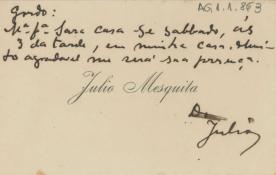 AG.1.1.863
Gordo:
Mª. fª. Sara casa-se sabbado, ás
3 da tarde, em minha casa. Mui-
to agradavel me será sua presença.
Julio Mesquita
Do
Julio